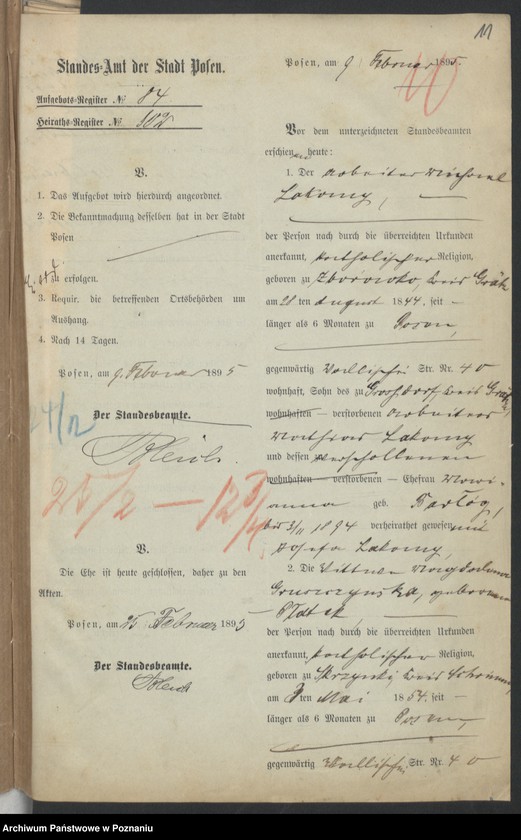 11
Standes-Amt der Stadt Posen.
Aufgebots-Register № 84
Heiraths-Register № 102
V.
1. Das Aufgebot wird hierdurch angeordnet.
2. Die Bekanntmachung desselben hat in der Stadt
Posen
zu erfolgen.
3. Requir. die betreffenden Ortsbehörden um
Aushang.
4. Nach 14 Tagen.
Posen, am 9. Februar 1895
Der Standesbeamte.
24/2
25/2 — 12
V.
Die Ehe ist heute geschlossen, daher zu den
Akten.
Posen, am 25 Februar 1895
Der Standesbeamte.
Posen, am 9 Februar 1895.
Vor dem unterzeichneten Standesbeamten
erschien heute:
1. Der Arbeiter Michael
Lakomy,
der Person nach durch die überreichten Urkunden
anerkannt, katholischer Religion,
geboren zu Zborowko, Kreis Grätz
am 28 ten August 1844, seit —
länger als 6 Monaten zu Posen,
gegenwärtig Wallischei Str. Nr. 40
wohnhaft, Sohn des zu Kreis Grätz,
wohnhaften — verstorbenen Arbeiters
Mathias Lakomy
und dessen verschollenen
wohnhaften — verstorbenen — Ehefrau Mari-
anna geb. Bartog,
bis 3/11 1894 verheirathet gewesen mit
Josefa Lakomy,
2. Die Wittwe Magdalena
geborene
der Person nach durch die überreichten Urkunden
anerkannt, katholischer Religion,
geboren zu Skrzynki, Kreis Schrimm,
am ten Mai 1854, seit —
länger als 6 Monaten zu Posen,
gegenwärtig Wallischei Str. Nr. 40
Archiwum Państwowe w Poznaniu